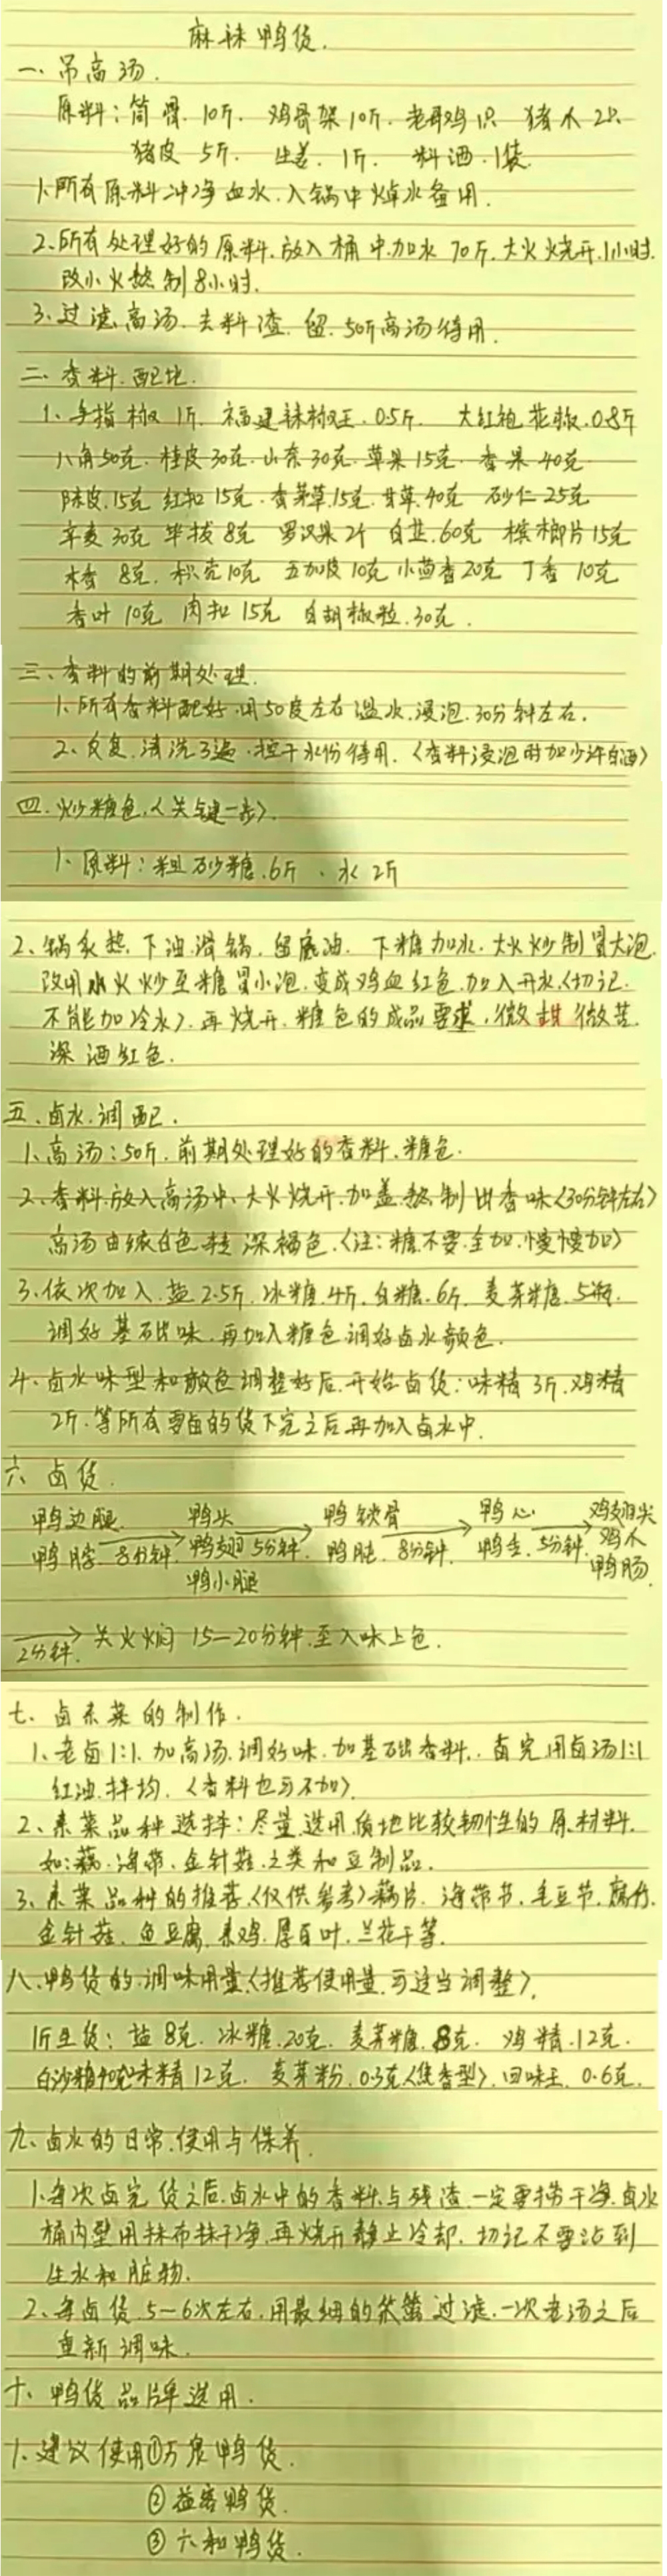 麻辣鸭货.
一、吊高汤.
原料:筒骨.10斤. 鸡骨架10斤. 老母鸡1只 猪爪2只
猪皮 5斤. 生姜.1斤. 料酒.1袋.
1、所有原料冲净血水.入锅中焯水备用.
2、所有处理好的原料.放入桶中.加水70斤.大火烧开.1小时.
改小火熬制8小时.
3、过滤高汤.去料渣.留.50斤高汤待用.
二、香料.配比.
1、手指椒1斤.福建辣椒王.0.5斤. 大红袍花椒.0.8斤
八角50克.桂皮30克.山奈30克.草果15克.香果40克
陈皮.15克 红扣15克.香茅草.15克.甘草.40克 砂仁25克
辛夷30克 毕拔8克 罗汉果2个 白芷.60克 槟榔片15克
木香 8克.枳壳10克 五加皮10克 小茴香20克 丁香10克
香叶10克 肉扣15克 白胡椒粒.30克.
三、香料的前期处理.
1、所有香料配好.用50度左右温水.浸泡.30分钟左右.
2、反复.清洗3遍.控干水份待用.〈香料浸泡时加少许白酒〉
四、炒糖色.〈关键一步〉.
1、原料:粗砂糖.6斤、水2斤
2、锅炙热.下油滑锅.留底油.下糖加水.大火炒制冒大泡.
改用小火炒至糖冒小泡.变成鸡血红色.加入开水〈切记.
不能加冷水〉.再烧开.糖色的成品要求.微甜微苦.
深酒红色.
五、卤水.调配.
1、高汤:50斤.前期处理好的香料.糖色.
2、香料.放入高汤中.大火烧开.加盖熬制出香味〈30分钟左右〉
高汤由浓白色转深褐色.〈注:糖不要全加.慢慢加〉
3、依次加入.盐2.5斤.冰糖.4斤.白糖.6斤.麦芽糖.5瓶.
调好基础味.再加入糖色调好卤水颜色.
4、卤水味型和颜色调整好后.开始卤货:味精3斤.鸡精
2斤.等所有要卤的货下完之后再加入卤水中.
六、卤货.
鸭边腿 鸭头 鸭锁骨 鸭心 鸡翅尖
鸭脖 8分钟 鸭翅 5分钟 鸭肫.8分钟. 鸭舌.5分钟.鸡爪
鸭小腿 鸭肠.
2分钟. 关火焖15—20分钟.至入味上色.
七、卤素菜的制作.
1、老卤1:1.加高汤.调好味.加基础香料.卤完用卤汤1:1
红油.拌均.〈香料也可不加〉.
2、素菜品种选择:尽量选用质地比较韧性的原材料.
如:藕.海带.金针菇.之类和豆制品.
3、素菜品种的推荐.〈仅供参考〉藕片.海带节.毛豆节.腐竹.
金针菇.鱼豆腐.素鸡.厚百叶.兰花干等.
八、鸭货的调味用量.〈推荐使用量.可适当调整〉.
1斤生货:盐8克.冰糖.20克.麦芽糖.8克.鸡精.12克.
白沙糖40克味精12克.麦芽粉.0.3克〈焦香型〉.回味王.0.6克.
九、卤水的日常.使用与保养.
1、每次卤完货之后.卤水中的香料与残渣.一定要捞干净.卤水
桶内壁用抹布抹干净.再烧开静止冷却.切记不要沾到
生水和脏物.
2、每卤货5—6次左右.用最细的笊篱过滤.一次老汤之后
重新调味.
十、鸭货品牌选用.
1、建议使用①万泉鸭货.
②益客鸭货.
③六和鸭货.